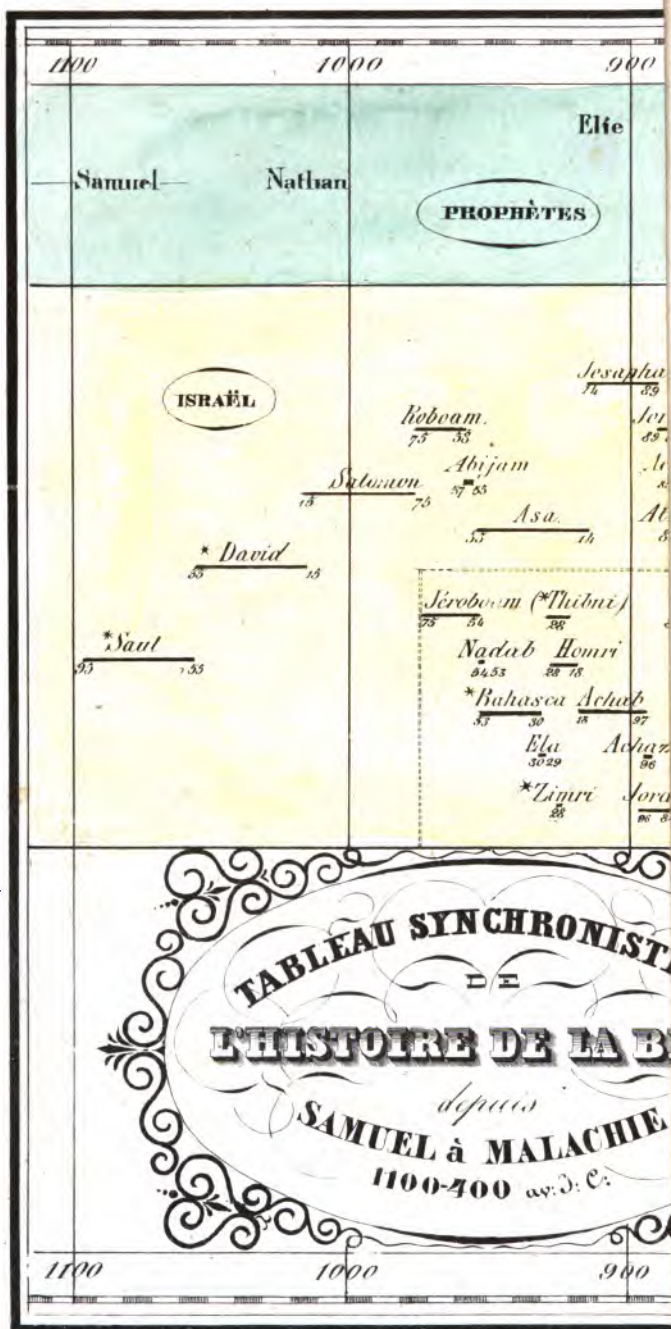 1100 1000 900
Elie
Samuel Nathan
PROPHÈTES
Josapha
14 89
ISRAËL
Roboam.
75 58
Abijam
57 55
Salomon
15 75
Asa.
55 14
* David
55 15
Jéroboam (*Thibni)
75 54 28
*Saul
95 55
Nadab Homri
54 53 28 18
*Bahasca Achab
53 30 18 97
Ela Achaz
30 29 96
*Zimri Jora
28 96 8
TABLEAU SYNCHRONISTI
DE
L'HISTOIRE DE LA B
depuis
SAMUEL à MALACHIE
1100-400 av: J: C:
1100 1000 900